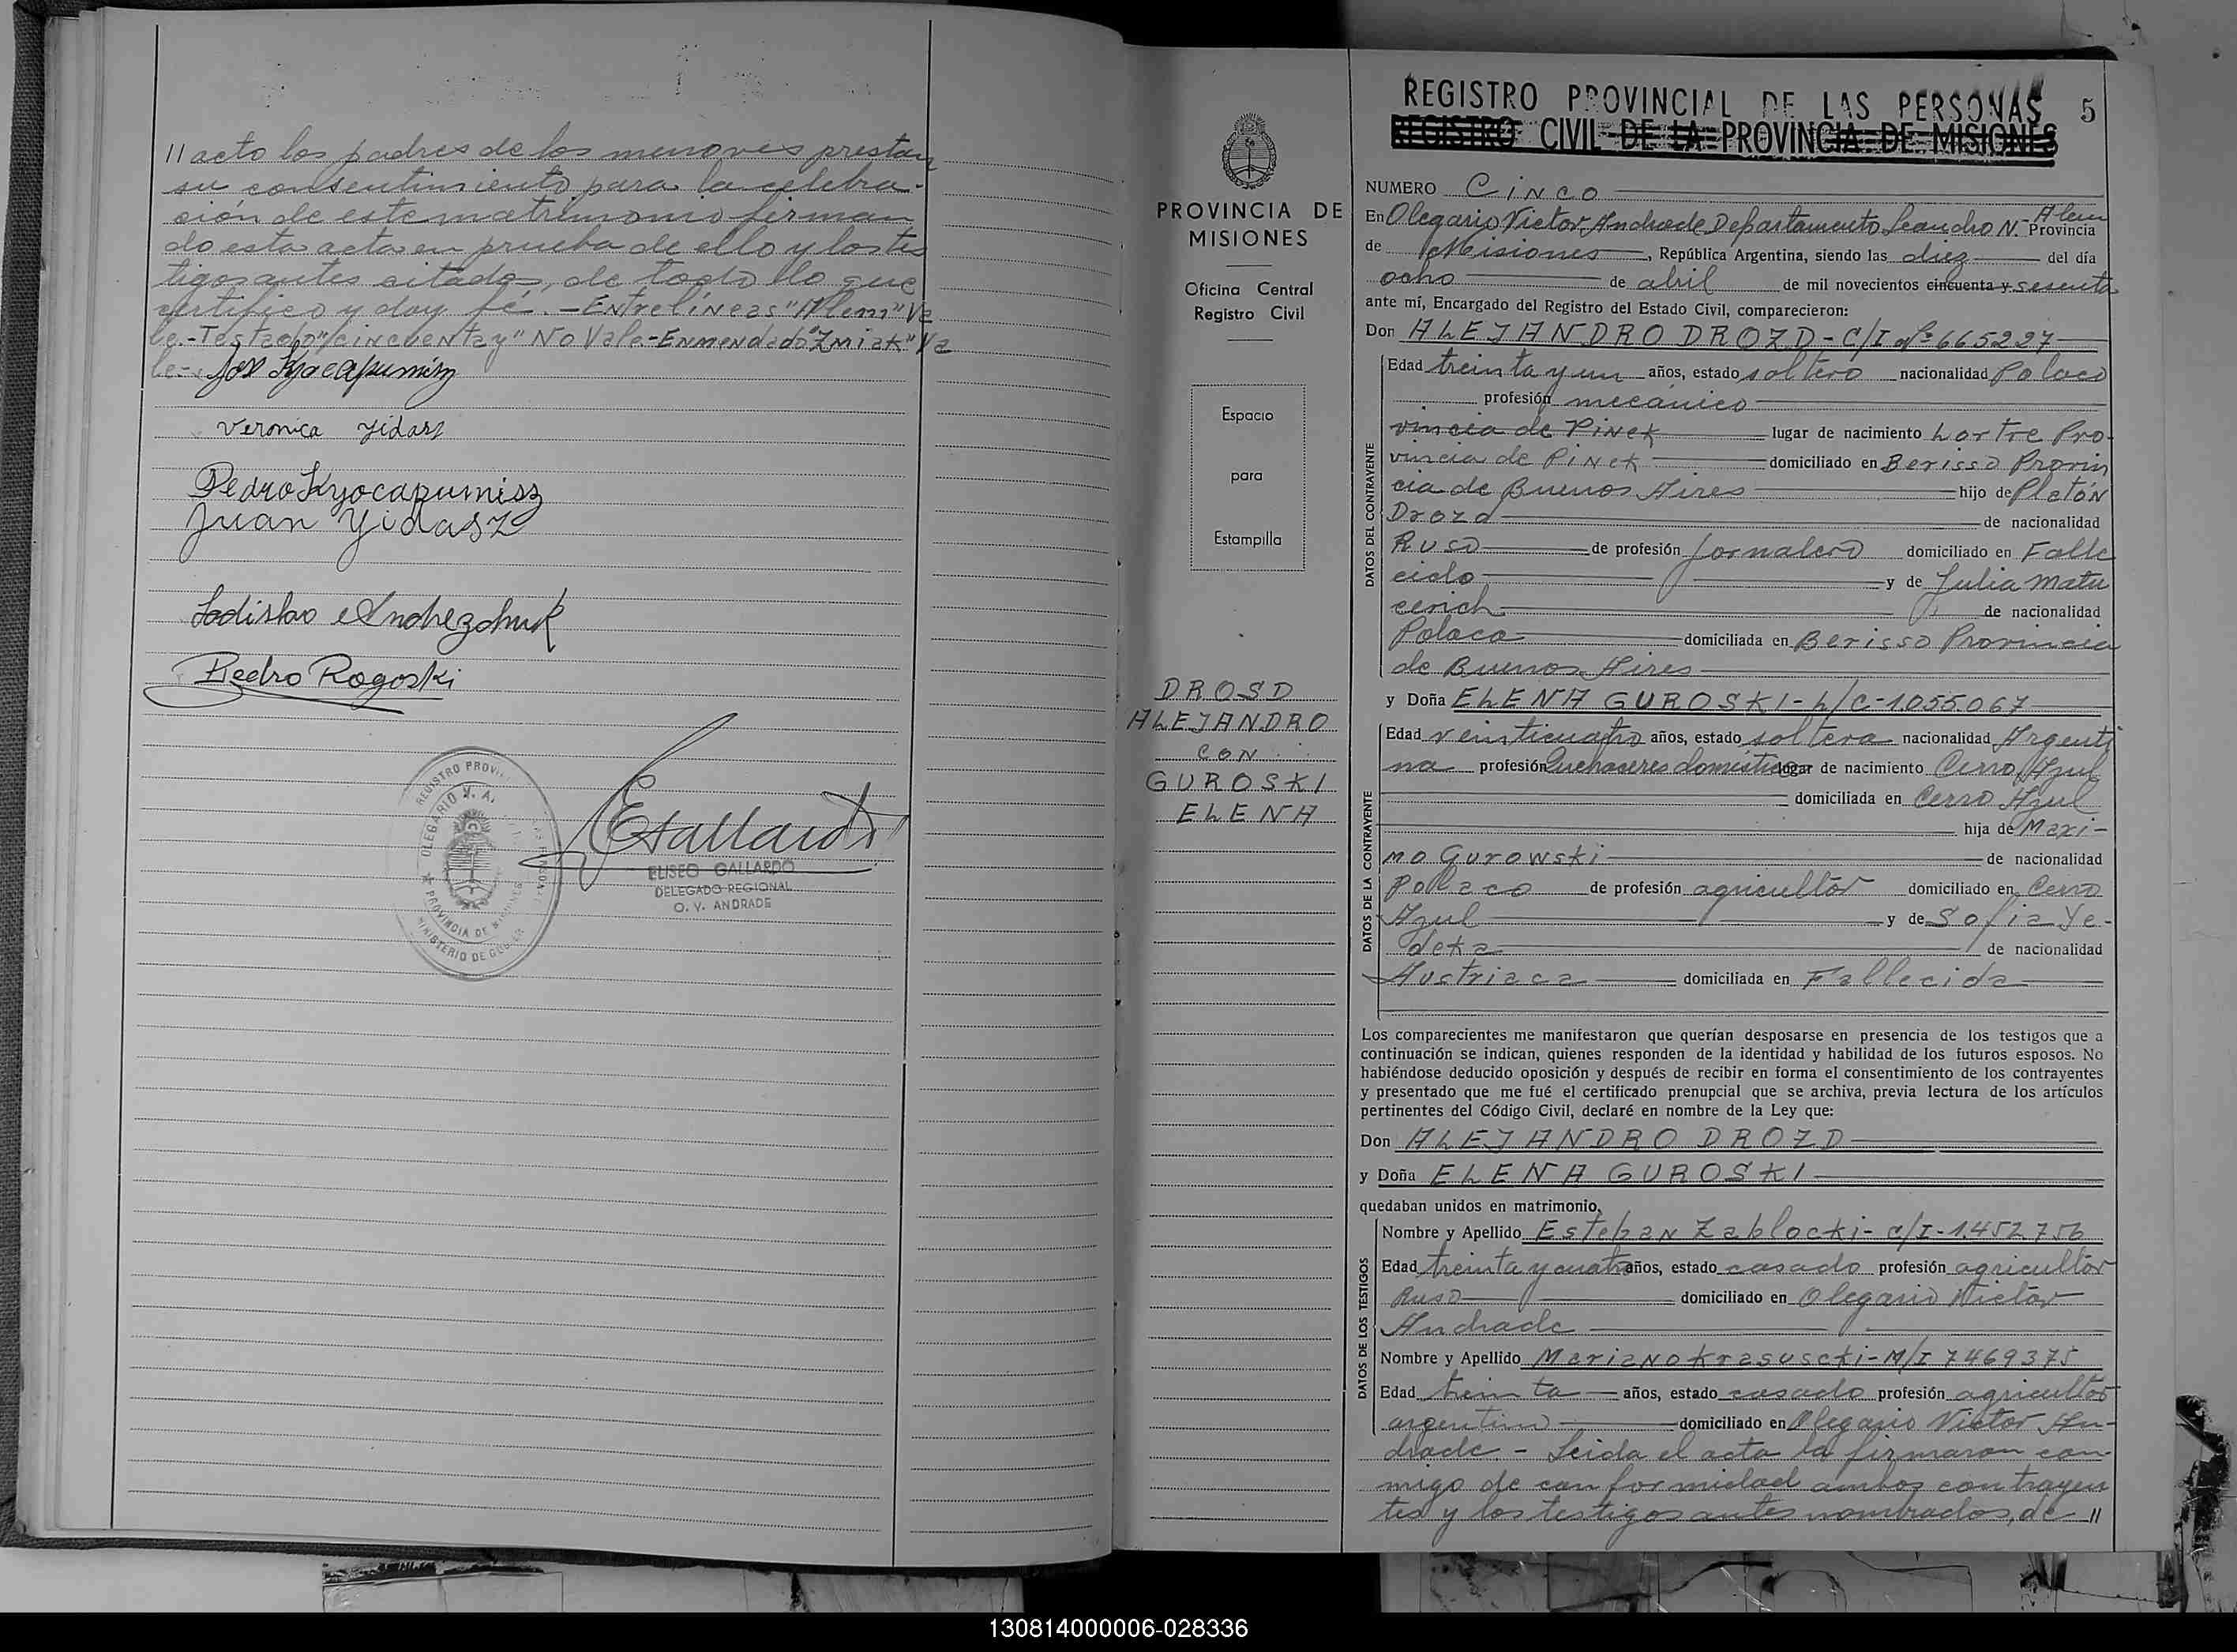 // acto los padres de los menores prestan
su consentimiento para la celebra-
ción de este matrimonio firman
do esta acta en prueba de ello y los tes
tigos antes citados, de todo lo que
certifico y doy fé. - Entrelíneas "Alem" Va
le.- Testado "cincuenta y" No Vale.- Enmendado "Zmiak" Va
le.-
Veronica Yidasz
Pedro Kyocapumisz
Juan Yidasz
Ladislao Andrezchuk
Pedro Rogoski
EGallardo
REGISTRO PROVIN
OLEGARIO V. A.
PROVINCIA DE MISIONES
MINISTERIO DE GOBIER
ELISEO GALLARDO
DELEGADO REGIONAL
O. V. ANDRADE
PROVINCIA DE
MISIONES
Oficina Central
Registro Civil
Espacio
para
Estampilla
DROSD
ALEJANDRO
CON
GUROSKI
ELENA
REGISTRO PROVINCIAL DE LAS PERSONAS 5
REGISTRO CIVIL DE LA PROVINCIA DE MISIONES
NUMERO Cinco
En Olegario Victor Andrade Departamento Leandro N. Alem Provincia
de Misiones, República Argentina, siendo las diez del día
ocho de abril de mil novecientos cincuenta y sesenta
ante mí, Encargado del Registro del Estado Civil, comparecieron:
Don ALEJANDRO DROZD - C/I Nº 665227
DATOS DEL CONTRAYENTE
Edad treinta y un años, estado soltero nacionalidad Polaco
profesión mecánico
vincia de Pinek lugar de nacimiento Lortre Pro-
vincia de Pinek domiciliado en Berisso Provin
cia de Buenos Aires hijo de Platón
Drozd de nacionalidad
Ruso de profesión Jornalero domiciliado en Falle
cido y de Julia Matu
cerich de nacionalidad
Polaca domiciliada en Berisso Provincia
de Buenos Aires
y Doña ELENA GUROSKI - L/C - 1.055.067
DATOS DE LA CONTRAYENTE
Edad veinticuatro años, estado soltera nacionalidad Argenti
na profesión Quehaceres domésticos lugar de nacimiento Cerro Azul
domiciliada en Cerro Azul
hija de Maxi-
mo Gurowski de nacionalidad
Polaco de profesión agricultor domiciliado en Cerro
Azul y de Sofia Ye-
deka de nacionalidad
Austriaca domiciliada en Fallecida
Los comparecientes me manifestaron que querían desposarse en presencia de los testigos que a
continuación se indican, quienes responden de la identidad y habilidad de los futuros esposos. No
habiéndose deducido oposición y después de recibir en forma el consentimiento de los contrayentes
y presentado que me fué el certificado prenupcial que se archiva, previa lectura de los artículos
pertinentes del Código Civil, declaré en nombre de la Ley que:
Don ALEJANDRO DROZD
y Doña ELENA GUROSKI
quedaban unidos en matrimonio,
DATOS DE LOS TESTIGOS
Nombre y Apellido Esteban Zablocki - C/I - 1.452.756
Edad treinta y cuatro años, estado casado profesión agricultor
Ruso domiciliado en Olegario Victor
Andrade
Nombre y Apellido Mariano Krasuscki - M/I 7469375
Edad treinta años, estado casado profesión agricultor
argentino domiciliado en Olegario Victor An-
drade - Leida el acta la firmaron con-
migo de conformidad ambos contrayen
tes y los testigos antes nombrados, de //
130814000006-028336